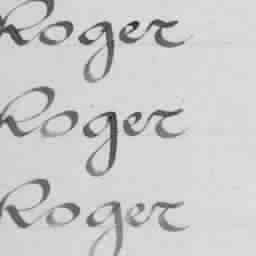 Roger
Roger
Roger